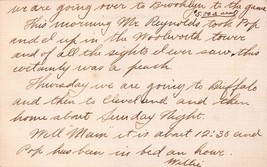 we are going over to Brooklyn to the game
This morning Mr Reynolds took Pop
and I up in the Woolworth tower
and of all the sights I ever saw, this
certainly was a peach.
Thursday we are going to Buffalo
and then to Cleveland and then
home about Sunday Night.
Well Mam it is about 12:30 and
Pop has been in bed an hour.
Willie